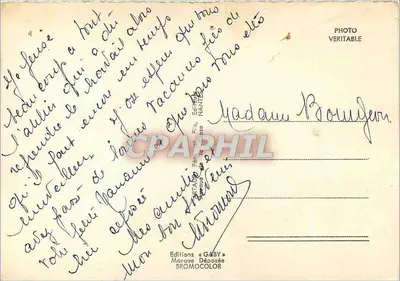 Je pense
beaucoup à tout
l'atelier qui a dû
reprendre le travail alors
qu'il fait encore un temps
merveilleux. J'espère que vous
avez passé de bonnes vacances près de
votre petite Maman que vous
Mes amitiés et
mon bon souvenir
PHOTO
VERITABLE
Madame Bourgeon
CPARPHIL
NANTES
Editions « GABY »
Marque Déposée
BROMOCOLOR